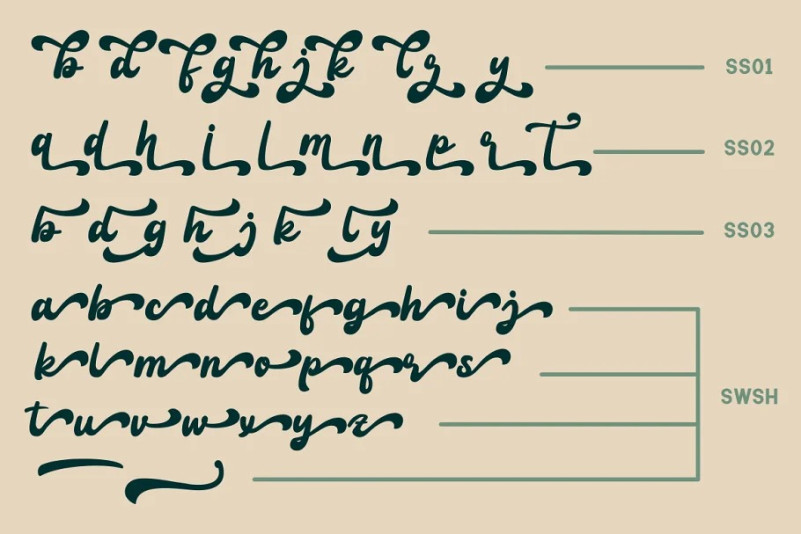 b d f g h j k l z y SS01
a d h i l m n p r t SS02
b d g h j k l y SS03
a b c d e f g h i j
k l m n o p q r s
SWSH
t u v w x y z